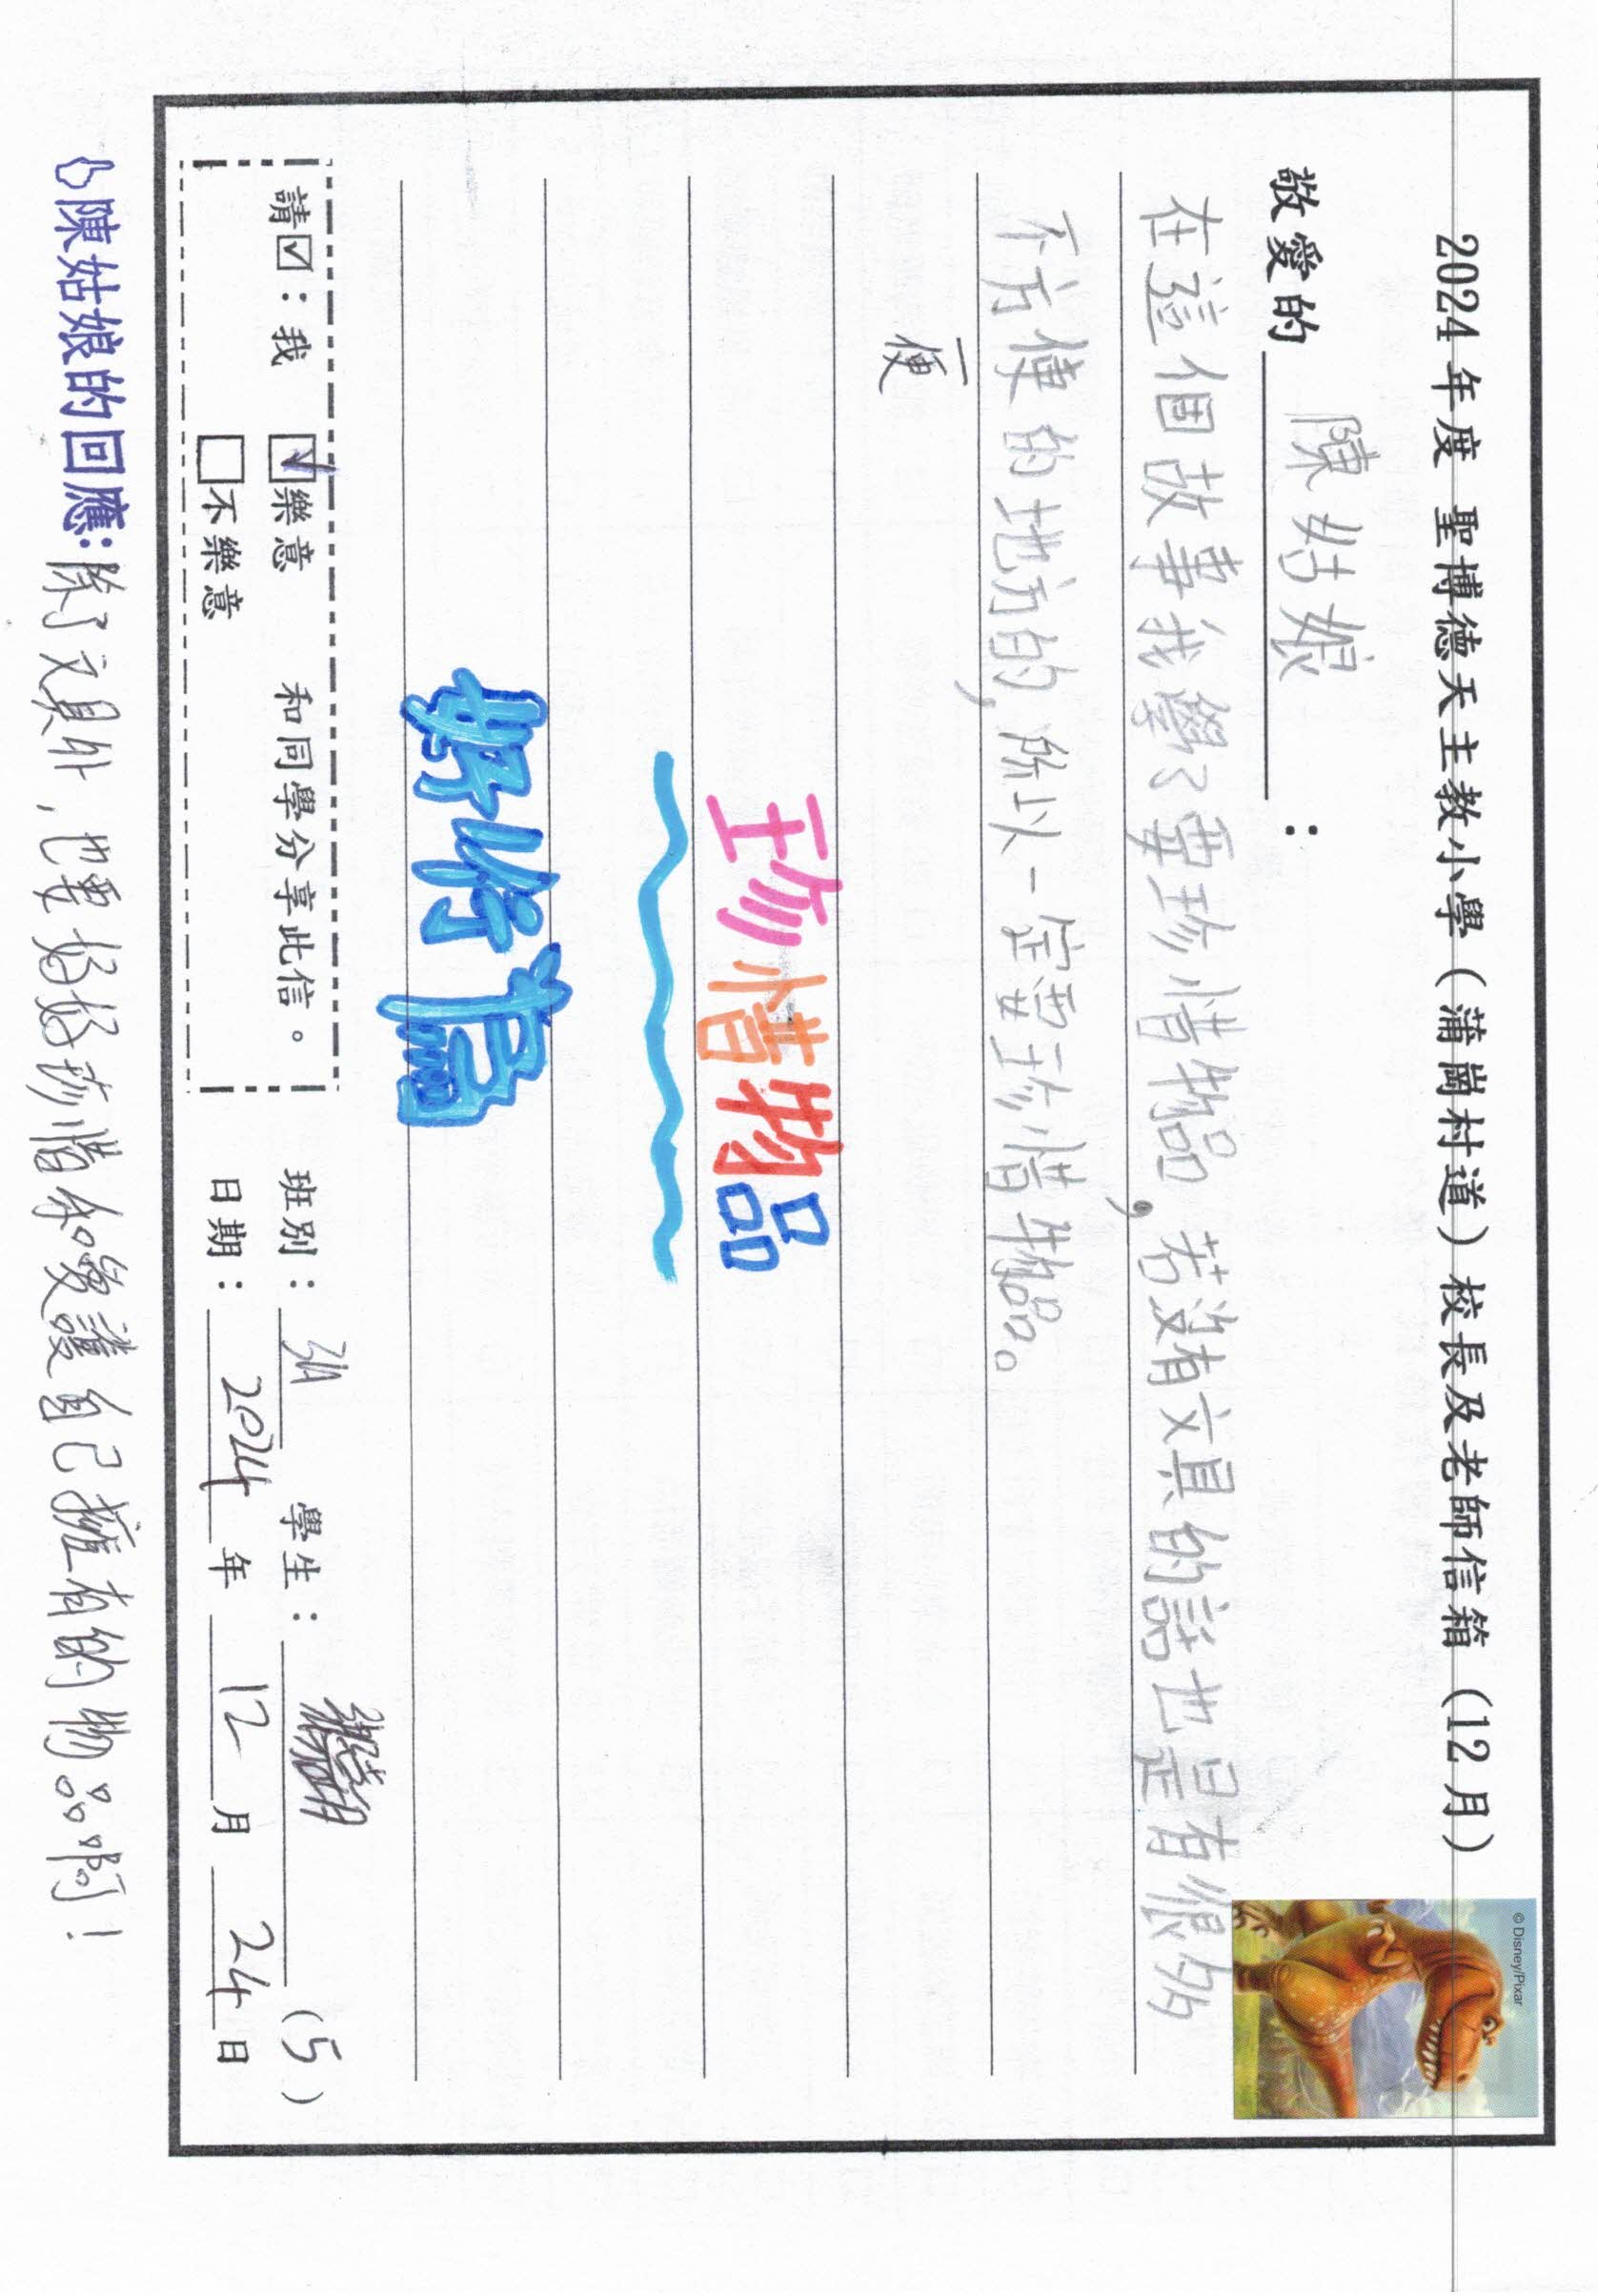 2024年度 聖博德天主教小學（蒲崗村道）校長及老師信箱（12月）
© Disney/Pixar
敬愛的 陳姑娘 ：
在這個故事我學了要珍惜物品，若沒有文具的話也是有很多
不方便的地方的，所以一定要珍惜物品。
便
珍惜物品
請☑：我 ☑樂意 和同學分享此信。
☐不樂意
班別：3A 學生： (5)
日期：2024年12月24日
陳姑娘的回應：除了文具外，也要好好珍惜和愛護自己擁有的物品啊！